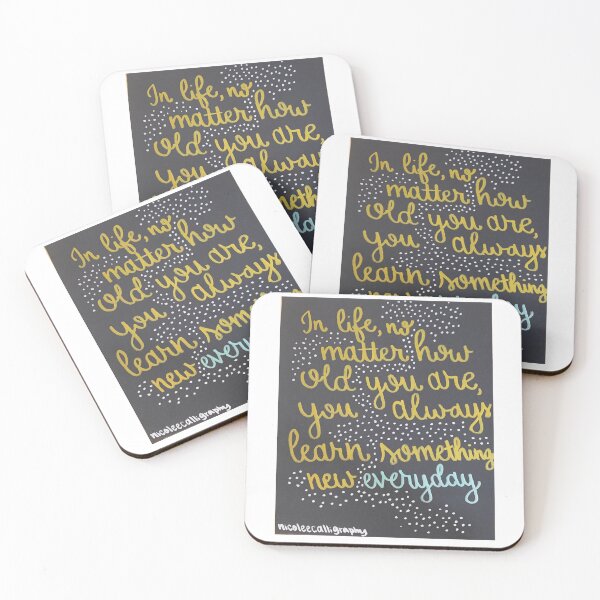 In life, no
matter how
old you are,
you always
In life, no
matter how
old you are,
you always
learn something
In life, no
matter how
old you are,
you always
learn
new every
nicoleecalligraphy
In life, no
matter how
old you are,
you always
learn something
new everyday
nicoleecalligraphy